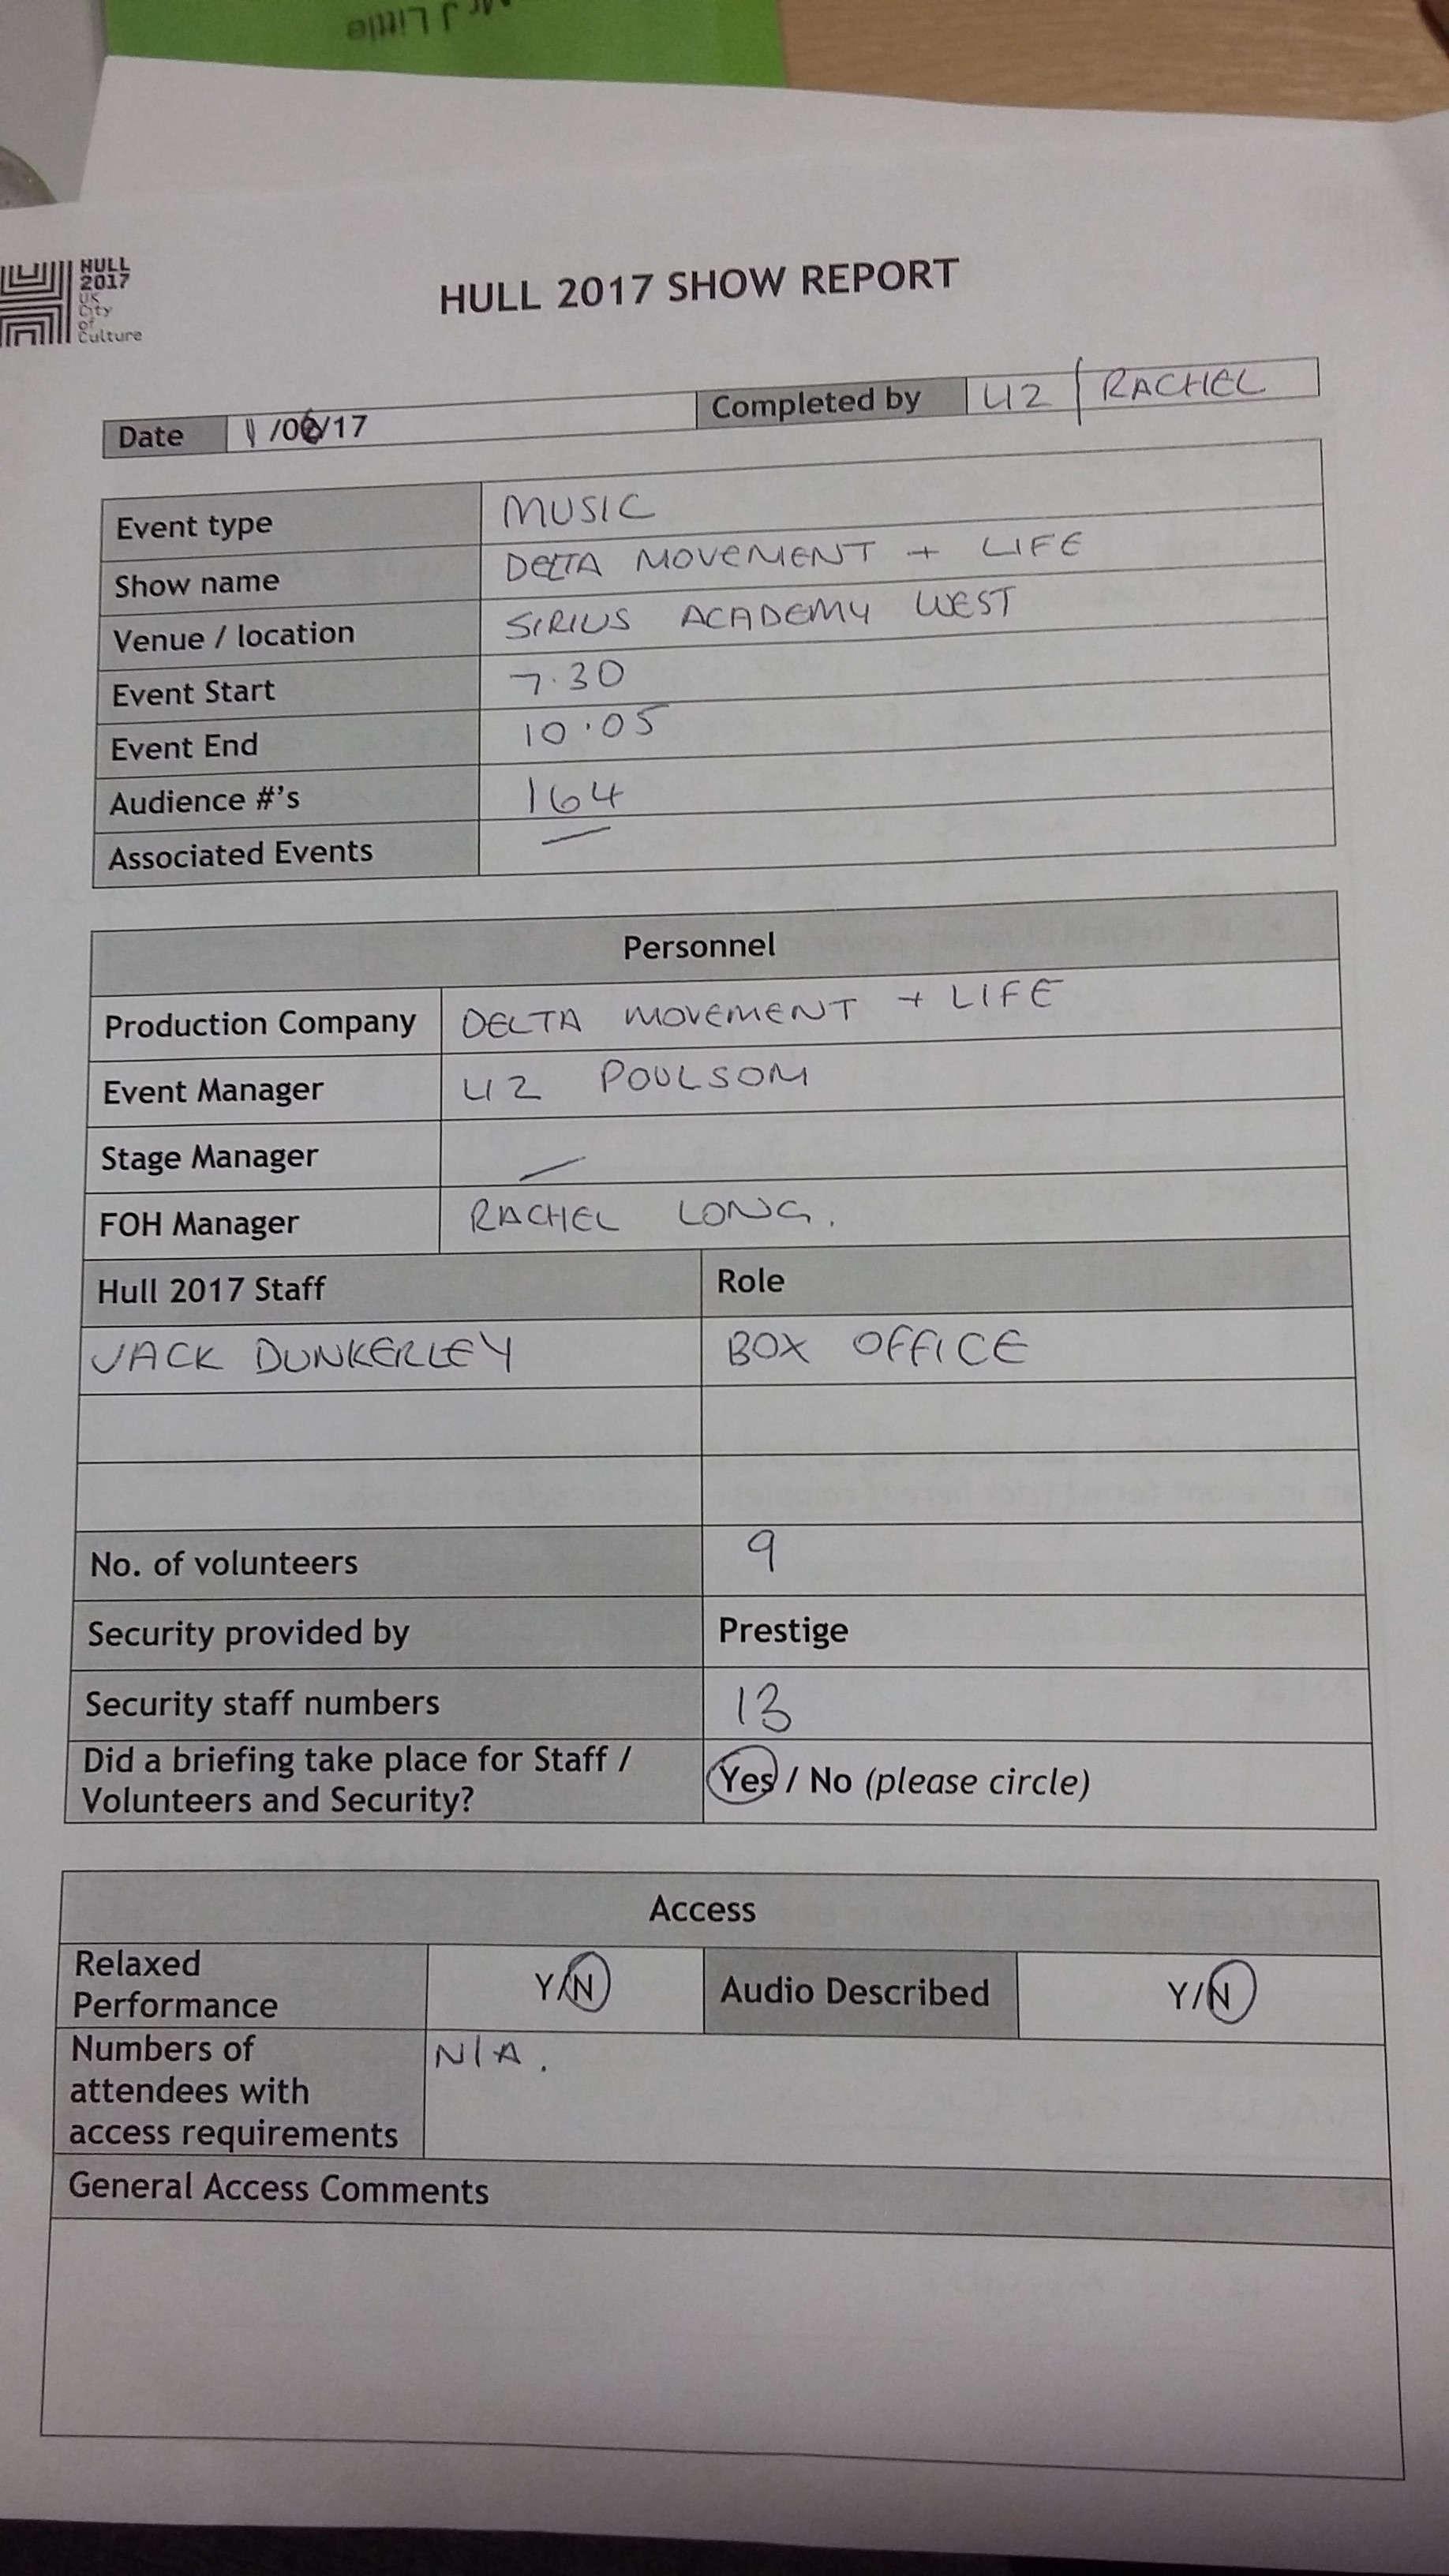 Mr J Little
HULL
2017
UK
City
of
Culture
HULL 2017 SHOW REPORT
Date /17 Completed by LIZ / RACHEL
Event type MUSIC
Show name DELTA MOVEMENT + LIFE
Venue / location SIRIUS ACADEMY WEST
Event Start 7.30
Event End 10.05
Audience #'s 164
Associated Events —
Personnel
Production Company DELTA MOVEMENT + LIFE
Event Manager LIZ POULSOM
Stage Manager —
FOH Manager RACHEL LONG.
Hull 2017 Staff Role
JACK DUNKERLEY BOX OFFICE
No. of volunteers 9
Security provided by Prestige
Security staff numbers 13
Did a briefing take place for Staff /
Volunteers and Security? Yes / No (please circle)
Access
Relaxed
Performance Y/N Audio Described Y/N
Numbers of
attendees with
access requirements N/A.
General Access Comments